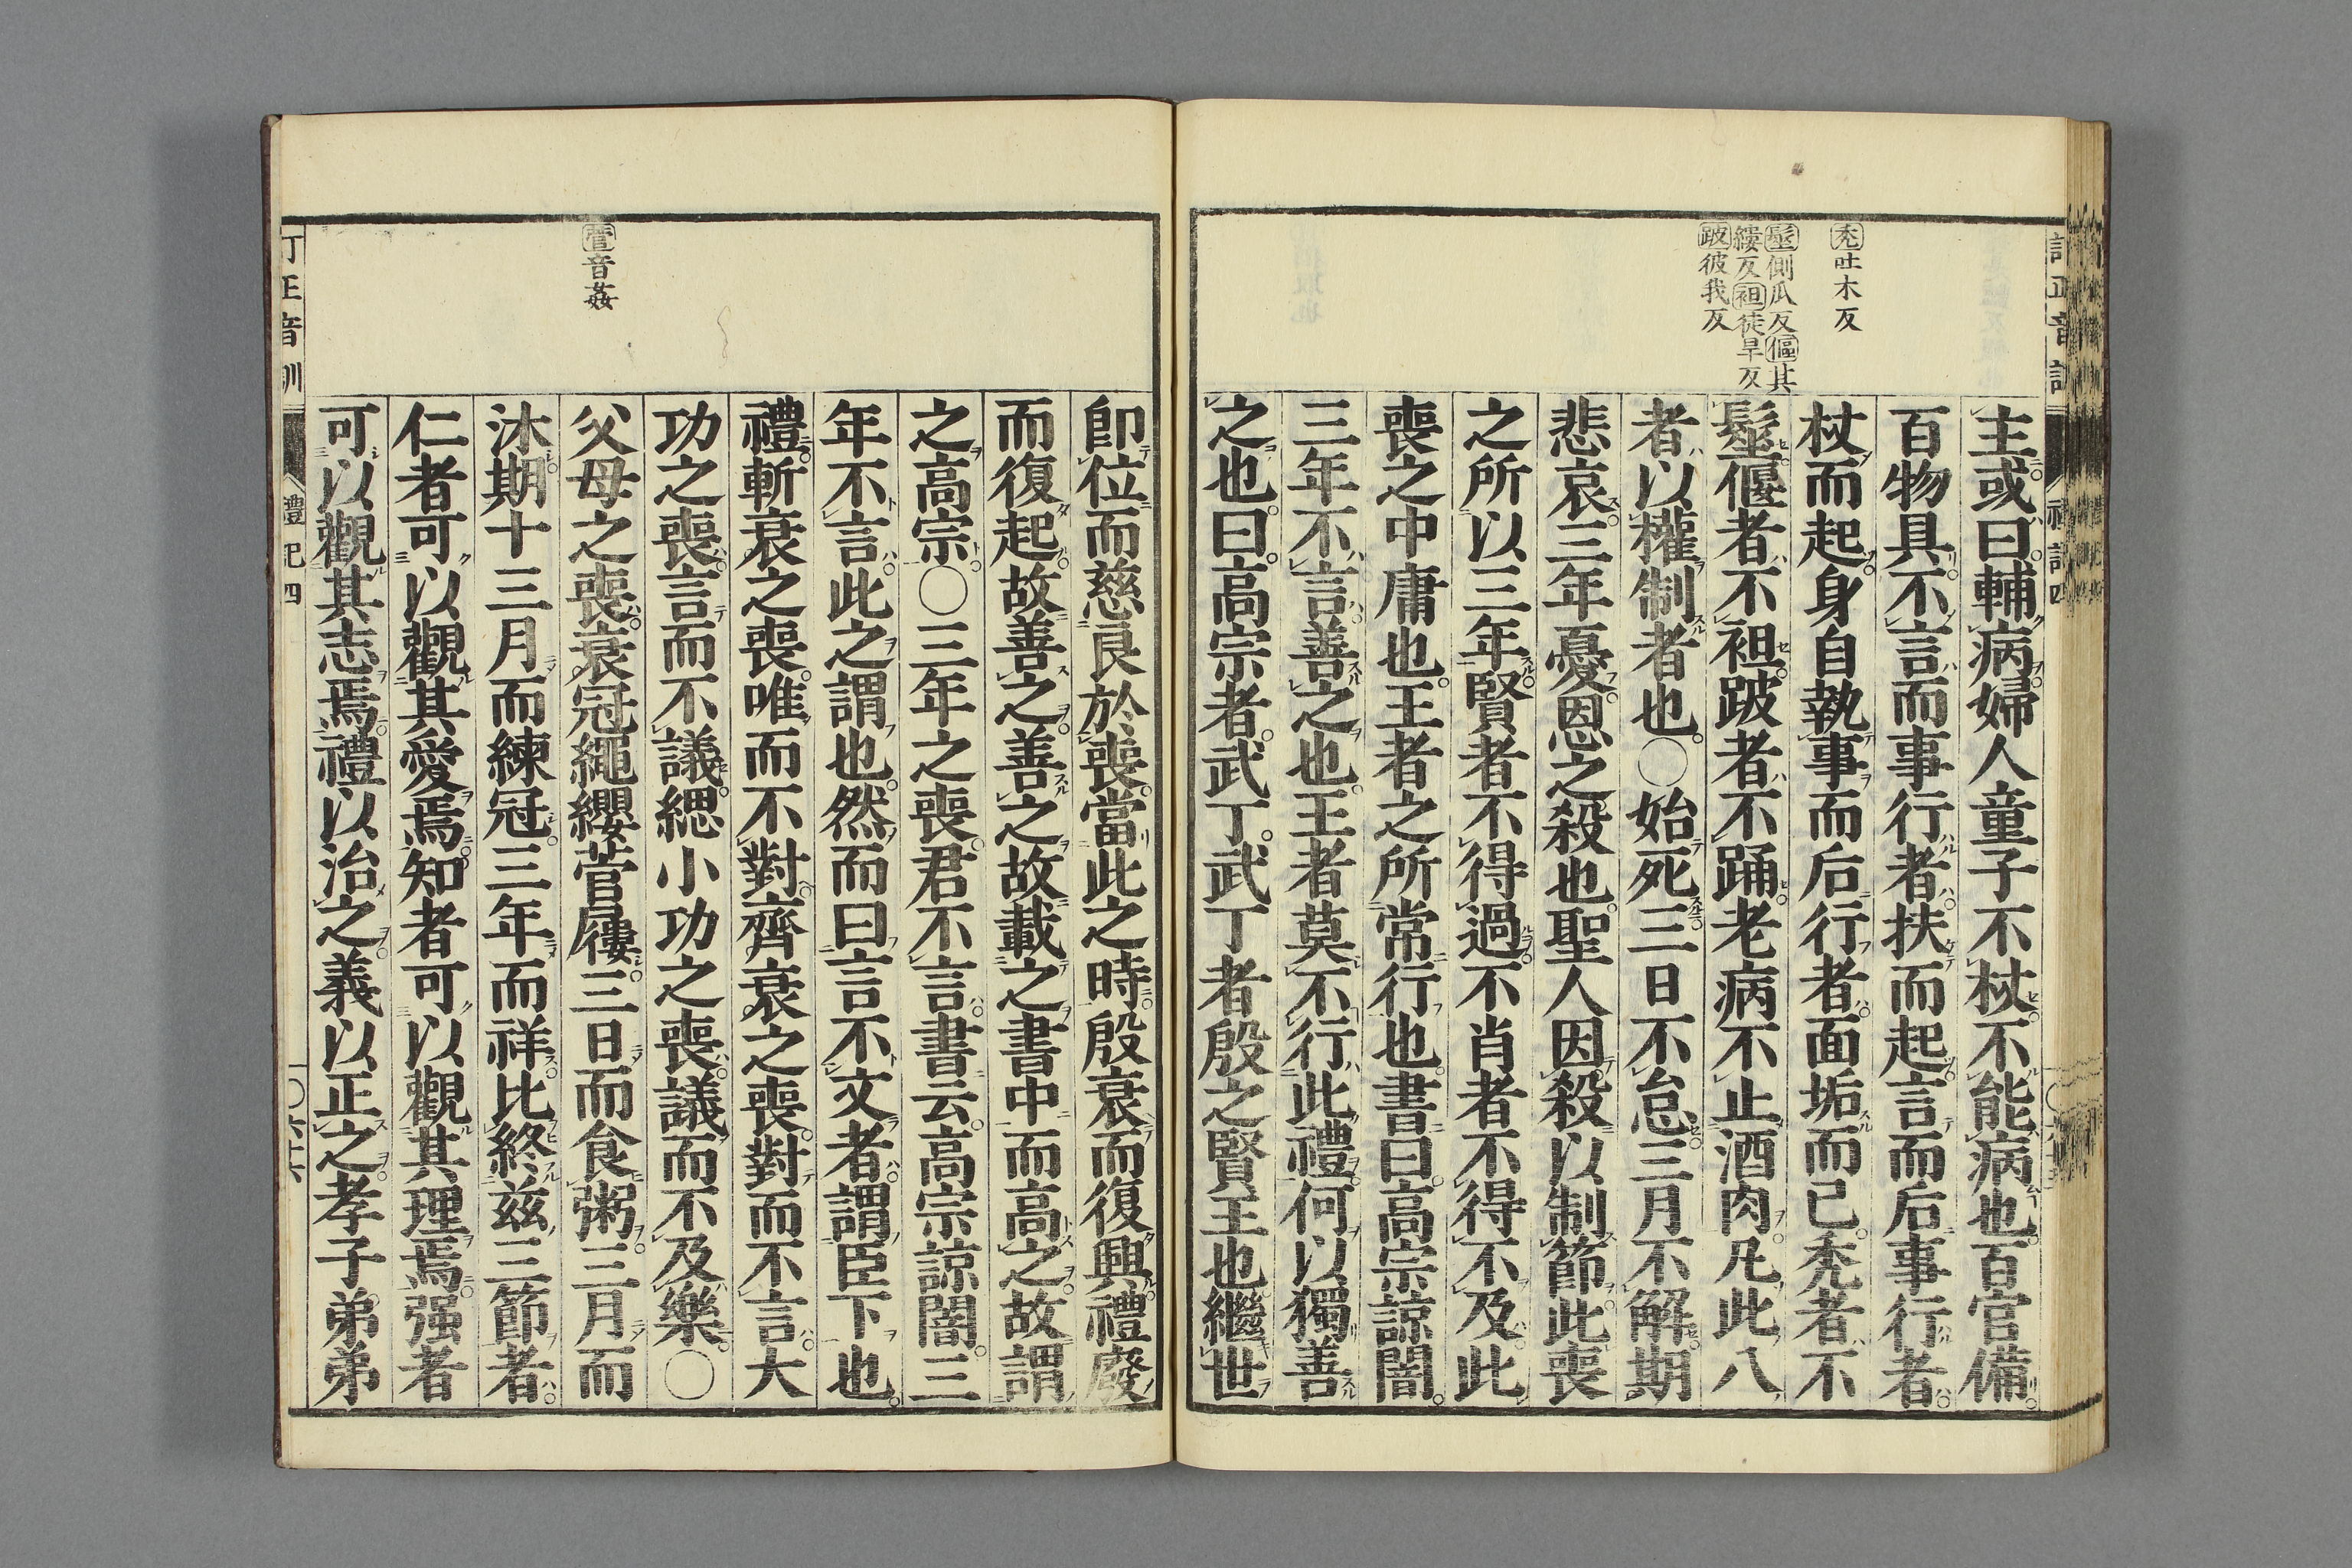 禿吐木反
髽側瓜反傴其
縷反袒徒旱反
跛彼我反
主或曰輔病婦人童子不杖不能病也百官備
百物具不言而事行者扶而起言而后事行者
杖而起身自執事而后行者面垢而已禿者不
髽傴者不袒跛者不踊老病不止酒肉凡此八
者以權制者也○始死三日不怠三月不解期
悲哀三年憂恩之殺也聖人因殺以制節此喪
之所以三年賢者不得過不肖者不得不及此
喪之中庸也王者之所常行也書曰高宗諒闇
三年不言善之也王者莫不行此禮何以獨善
之也曰高宗者武丁武丁者殷之賢王也繼世
菅音姦
卽位而慈良於喪當此之時殷衰而復興禮廢
而復起故善之善之故載之書中而高之故謂
之高宗○三年之喪君不言書云高宗諒闇三
年不言此之謂也然而曰言不文者謂臣下也
禮斬衰之喪唯而不對齊衰之喪對而不言大
功之喪言而不議緦小功之喪議而不及樂○
父母之喪衰冠繩纓菅屨三日而食粥三月而
沐期十三月而練冠三年而祥比終茲三節者
仁者可以觀其愛焉知者可以觀其理焉强者
可以觀其志焉禮以治之義以正之孝子弟弟
訂正音訓 禮記四